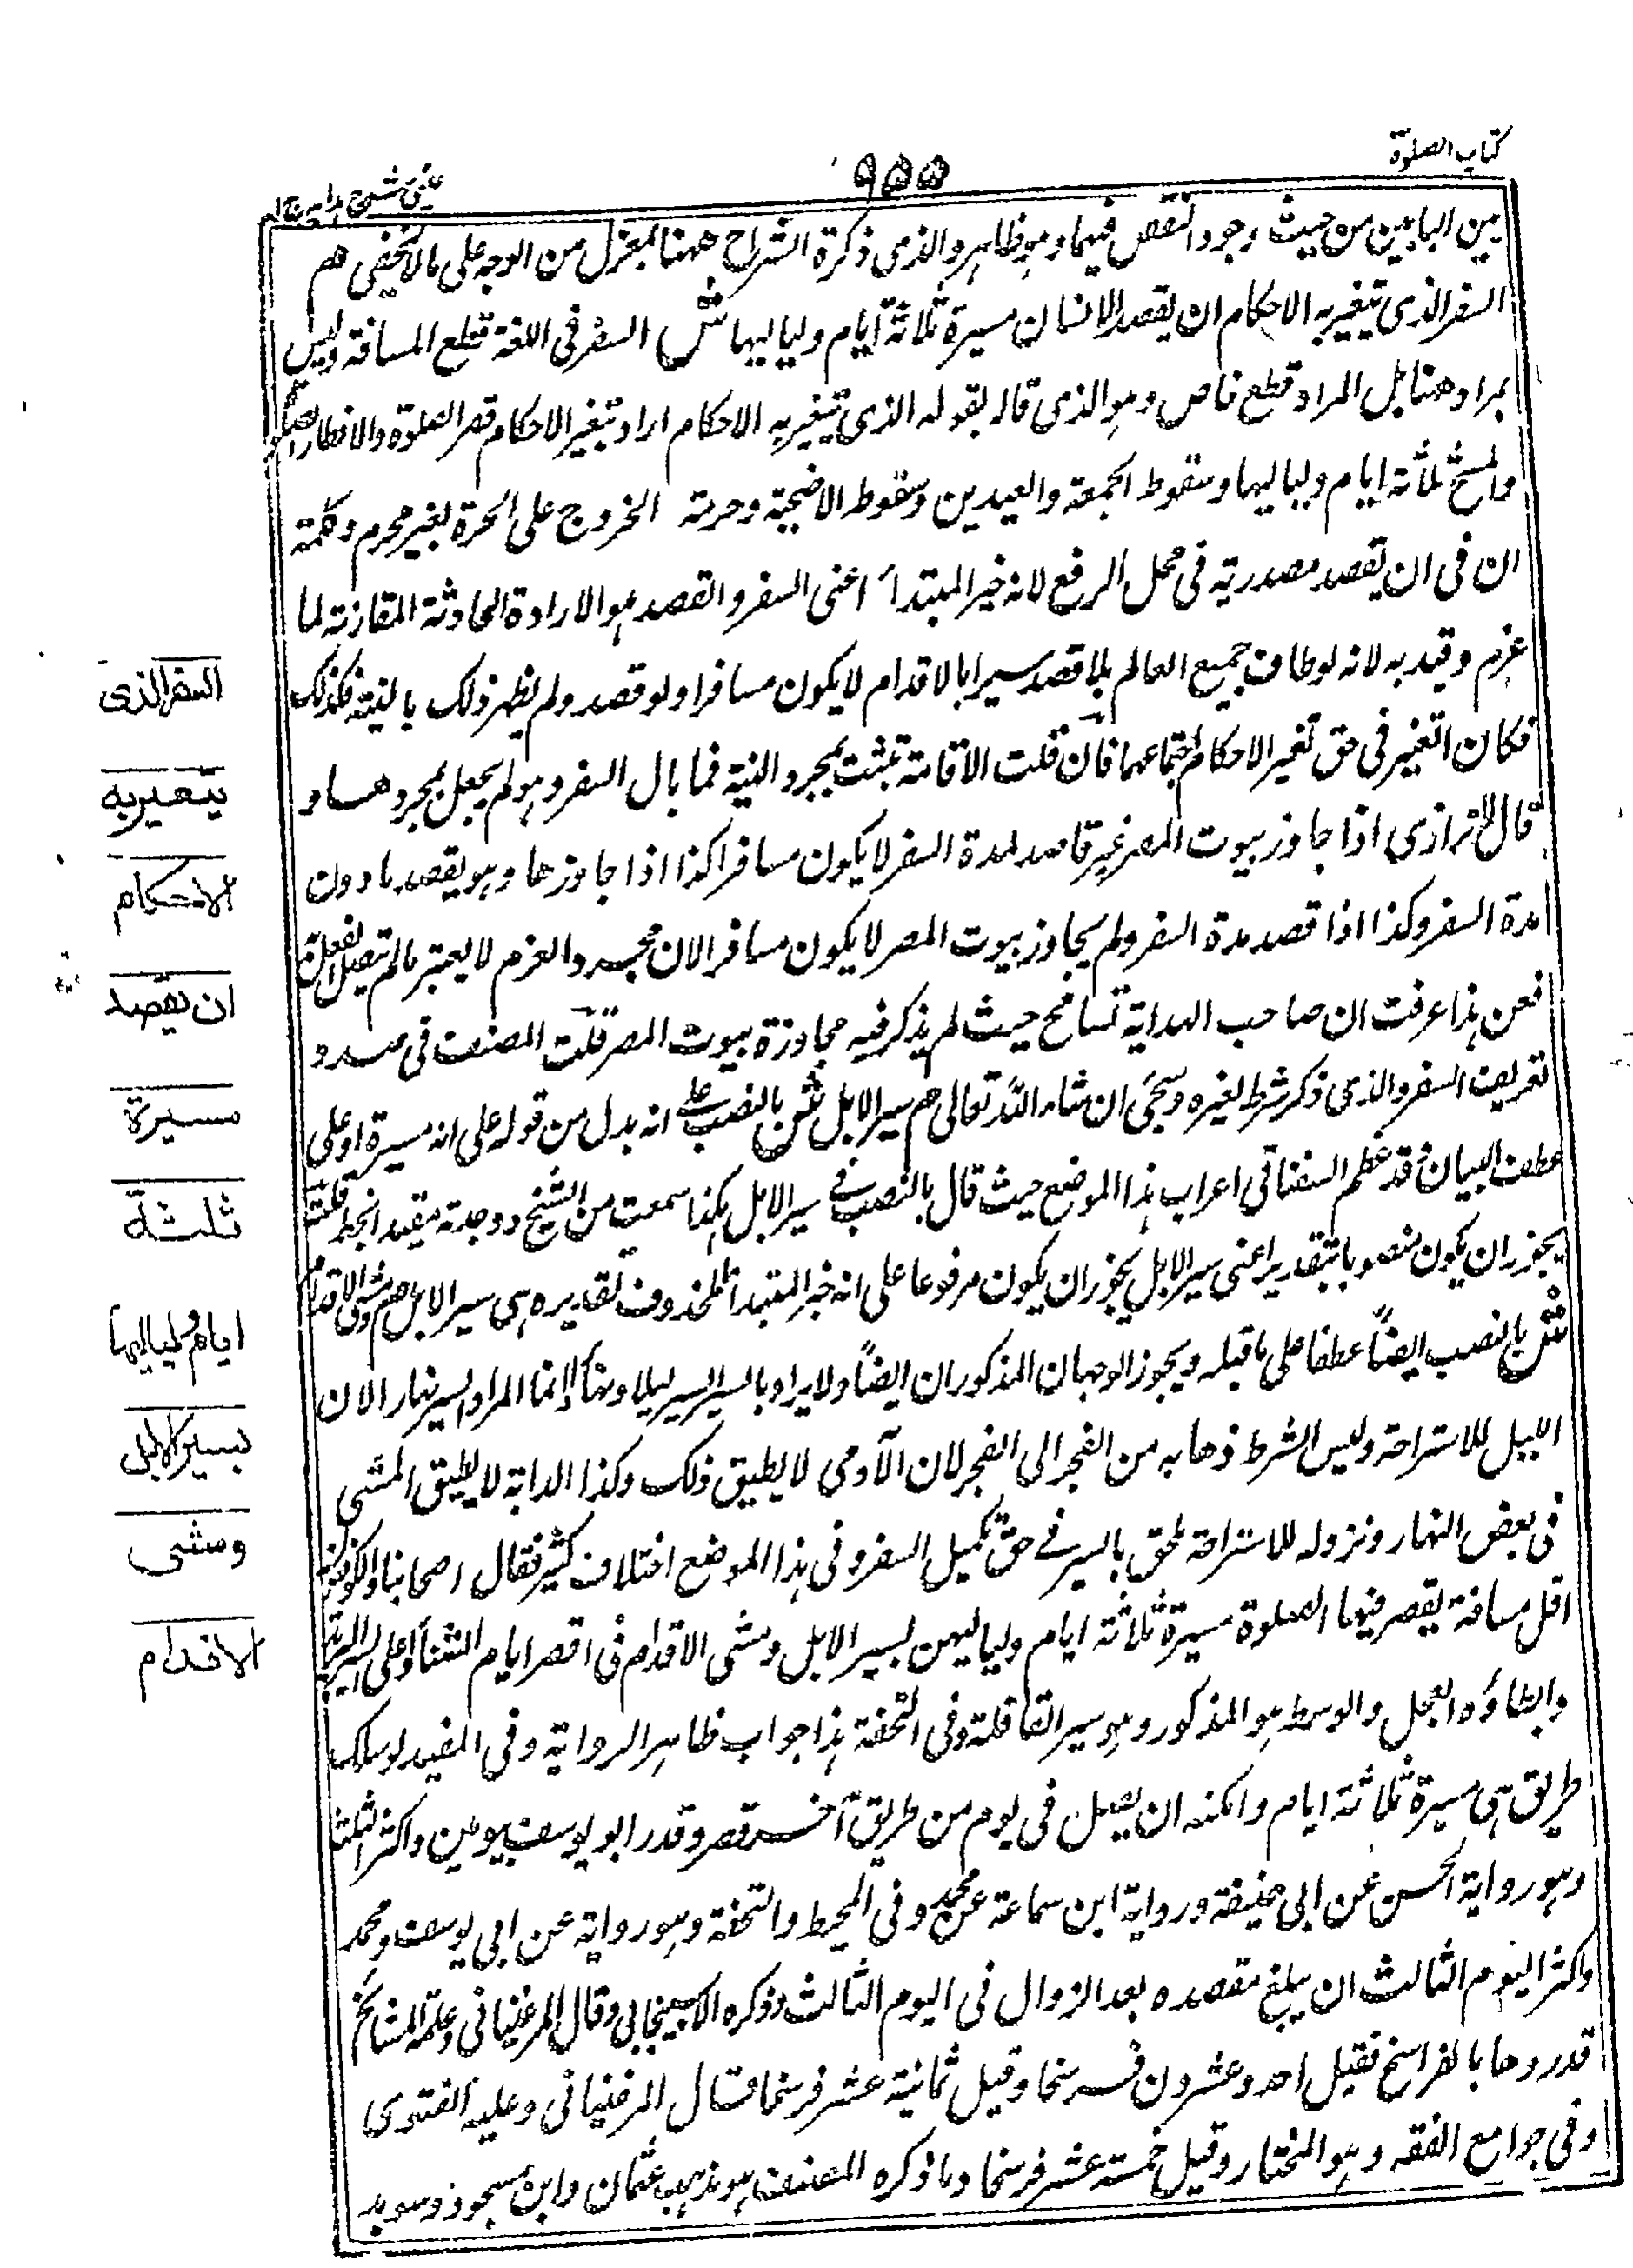 كتاب الصلوة
٩٥٥
عينى شرح هداية
بين البابين من حيث وجود النقص فيهما وهو ظاهر والذى ذكرة الشراح ههنا بمعزل من الوجه على ما لا يخفى هم
السفر الذى تتغير به الاحكام ان يقصد الانسان مسيرة ثلاثة ايام ولياليها ش السفر فى اللغة قطع المسافة وليس
بمراد هنا بل المراد قطع خاص وهو الذى قاله بقوله الذى تتغير به الاحكام اراد تغير الاحكام قصر الصلوة والافطار
والمسح ثلاثة ايام ولياليها وسقوط الجمعة والعيدين وسقوط الاضحية وحرمة الخروج على الحرة بغير محرم وكلمة
ان فى ان يقصد مصدرية فى محل الرفع لانه خبر المبتدأ اعنى السفر والقصد هو الارادة الحادثة المقارنة لما
عزم وقيد به لانه لو طاف جميع العالم بلا قصد سيرا بالاقدام لا يكون مسافرا ولو قصد ولم يظهر ذلك بالنية فكذلك
فكان التغير فى حق تغير الاحكام اجتماعهما فان قلت الاقامة تثبت بمجرد النية فما بال السفر وهو لم يجعل بمجردها و
قال الاترازى اذا جاوز بيوت المصر غير قاصد لمدة السفر لا يكون مسافرا كذا اذا جاوزها وهو يقصد ما دون
مدة السفر وكذا اذا قصد مدة السفر ولم يجاوز بيوت المصر لا يكون مسافرا لان مجرد العزم لا يعتبر ما لم يتصل بفعل
فعن هذا عرفت ان صاحب الهداية تسامح حيث لم يذكر فيه مجاوزة بيوت المصر قلت المصنف فى صدد
تعريف السفر والذى ذكر شرط لغيره وسيجئ ان شاء الله تعالى هم سير الابل ش بالنصب على انه بدل من قوله على انه مسيرة او على
عطف البيان وقد عظم السغناقى اعراب هذا الموضع حيث قال بالنصب فى سير الابل هكذا سمعت من الشيخ ووجدته مقيدا بخط قلت
يجوز ان يكون منصوبا بتقدير اعنى سير الابل يجوز ان يكون مرفوعا على انه خبر المبتدأ المحذوف تقديره هى سير الابل هم ومشى الاقدام
ش بالنصب ايضاً عطفا على ما قبله ويجوز الوجهان المذكوران ايضاً ولا يراد بالسير السير ليلا ونهاراً انما المراد السير نهارا لان
الليل للاستراحة وليس الشرط ذهابه من الفجر الى الفجر لان الآدمى لا يطيق ذلك وكذا الدابة لا يطيق المشى
فى بعض النهار ونزوله للاستراحة ملحق بالسير فى حق تكميل السفر وفى هذا الموضع اختلاف كثير فقال اصحابنا والكوفيون
اقل مسافة يقصر فيها الصلوة مسيرة ثلاثة ايام ولياليهن بسير الابل ومشى الاقدام فى اقصر ايام الشتاء واعلى السير
وابطاؤه العجل والوسط هو المذكور وهو سير القافلة وفى التحفة هذا جواب ظاهر الرواية وفى المفيد لو سلك
طريق هى مسيرة ثلاثة ايام وامكنه ان يصل فى يوم من طريق آخر قصر وقدر ابو يوسف بيومين واكثر الثالث
وهو رواية الحسن عن ابى حنيفة ورواية ابن سماعة عن محمد وفى المحيط والتحفة وهو رواية عن ابى يوسف ومحمد
واكثر اليوم الثالث ان يبلغ مقصده بعد الزوال فى اليوم الثالث وذكره الاسبيجابى وقال المرغينانى وعامة المشائخ
قدروها بالفراسخ فقيل احد وعشرون فرسخا وقيل ثمانية عشر فرسخا وقال المرغينانى وعليه الفتوى
وفى جوامع الفقه وهو المختار وقيل خمسة عشر فرسخا وما ذكره المصنف هو مذهب عثمان وابن مسعود وسويد
السفر الذى
يتغير به
الاحكام
ان يقصد
مسيرة
ثلثة
ايام ولياليها
بسير الابل
ومشى
الاقدام